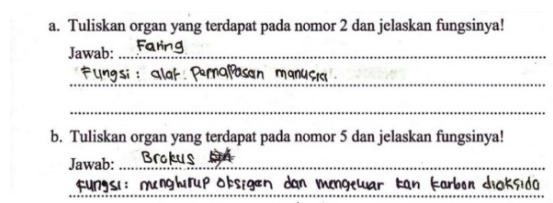 a. Tuliskan organ yang terdapat pada nomor 2 dan jelaskan fungsinya!
Jawab: Faring
Fungsi : alat pernapasan manusia.
b. Tuliskan organ yang terdapat pada nomor 5 dan jelaskan fungsinya!
Jawab: Brokus
Fungsi : menghirup oksigen dan mengeluar kan karbon dioksida